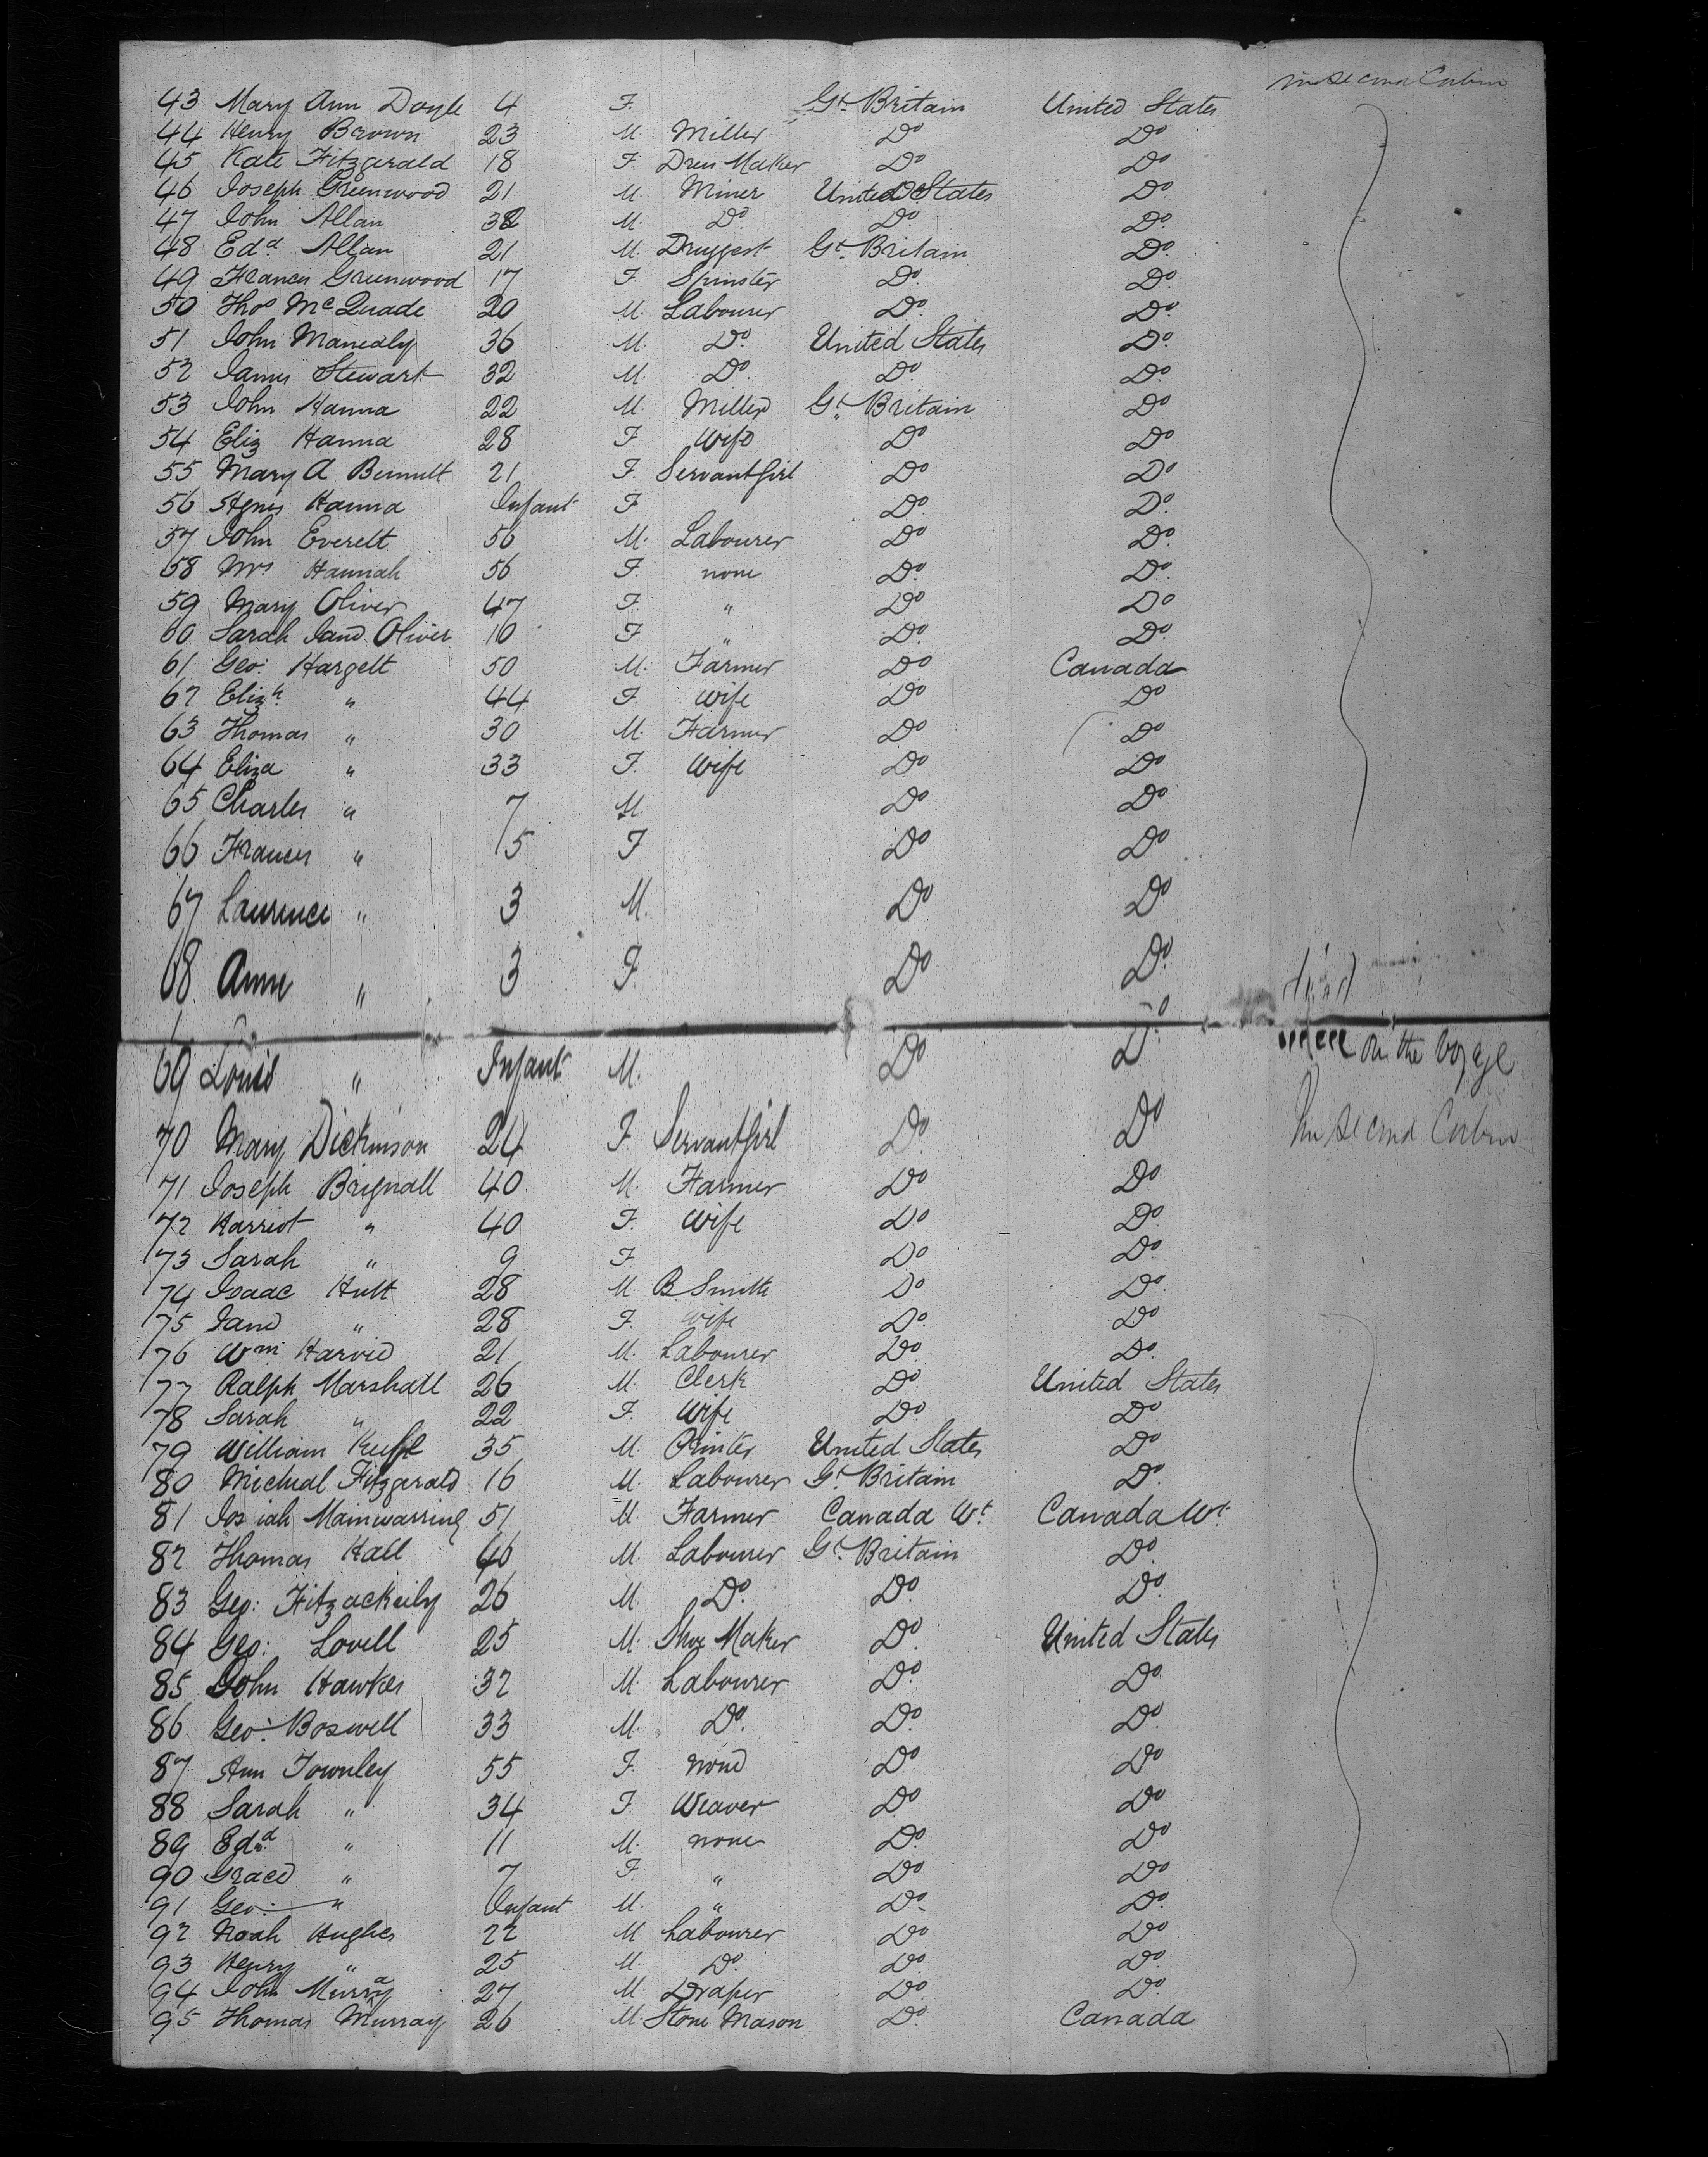 in second Cabin
43 Mary Ann Doyle 4 F. Gt. Britain United States
44 Henry Brown 23 M. Miller Do Do
45 Kate Fitzgerald 18 F. Dress Maker Do Do
46 Joseph Greenwood 21 M. Miner United States Do
47 John Allan 32 M. Do Do Do
48 Edd. Allan 21 M. Druggest Gt. Britain Do
49 Francis Greenwood 17 F. Spinster Do Do
50 Thos McQuade 20 M. Labourer Do Do
51 John Manealy 36 M. Do United States Do
52 James Stewart 32 M. Do Do Do
53 John Hanna 22 M. Miller Gt. Britain Do
54 Eliz Hanna 28 F. Wife Do Do
55 Mary A 21 F. Servant Girl Do Do
56 Agnes Hanna Infant F Do Do
57 John Everett 56 M. Labourer Do Do
58 Mrs Hannah 56 F. none Do Do
59 Mary Oliver 47 F. " Do Do
60 Sarah Jane Oliver 16 F " Do Do
61 Geo: Hargett 50 M. Farmer Do Canada
62 Elizh. " 44 F. Wife Do Do
63 Thomas " 30 M. Farmer Do Do
64 Eliza " 33 F. Wife Do Do
65 Charles " 7 M Do Do
66 Frances " 5 F Do Do
67 Laurence " 3 M. Do Do
68 Anne " 3 F. Do Do died
69 Louis " Infant M. Do Do on the Voyage
70 Mary Dickinson 24 F. Servant Girl Do Do In second Cabin
71 Joseph Brignall 40 M. Farmer Do Do
72 Harriot " 40 F. Wife Do Do
73 Sarah " 9 F. Do Do
74 Isaac Hutt 28 M. B Smith Do Do
75 Jane " 28 F. Wife Do Do
76 Wm Harvie 21 M. Labourer Do Do
77 Ralph Marshall 26 M. Clerk Do United States
78 Sarah " 22 F. Wife Do Do
79 William 35 M. Printer United States Do
80 Micheal Fitzgerald 16 M. Labourer Gt. Britain Do
81 Josiah Mainwarring 51 M. Farmer Canada Wt. Canada Wt.
82 Thomas Hall 46 M. Labourer Gt. Britain Do
83 Geo: Fitzackerly 26 M. Do Do Do
84 Geo: Lovell 25 M. Shoe Maker Do United States
85 John Hawkes 32 M. Labourer Do Do
86 Geo: Boswell 33 M. Do Do Do
87 Ann Townley 55 F. none Do Do
88 Sarah " 34 F. Weaver Do Do
89 Edd. " 11 M. none Do Do
90 Grace " 7 F. " Do Do
91 Geo: " Infant M. " Do Do
92 Noah Hughes 22 M Labourer Do Do
93 Henry " 25 M. Do Do Do
94 John Murray 27 M Draper Do Do
95 Thomas Murray 26 M. Stone Mason Do Canada